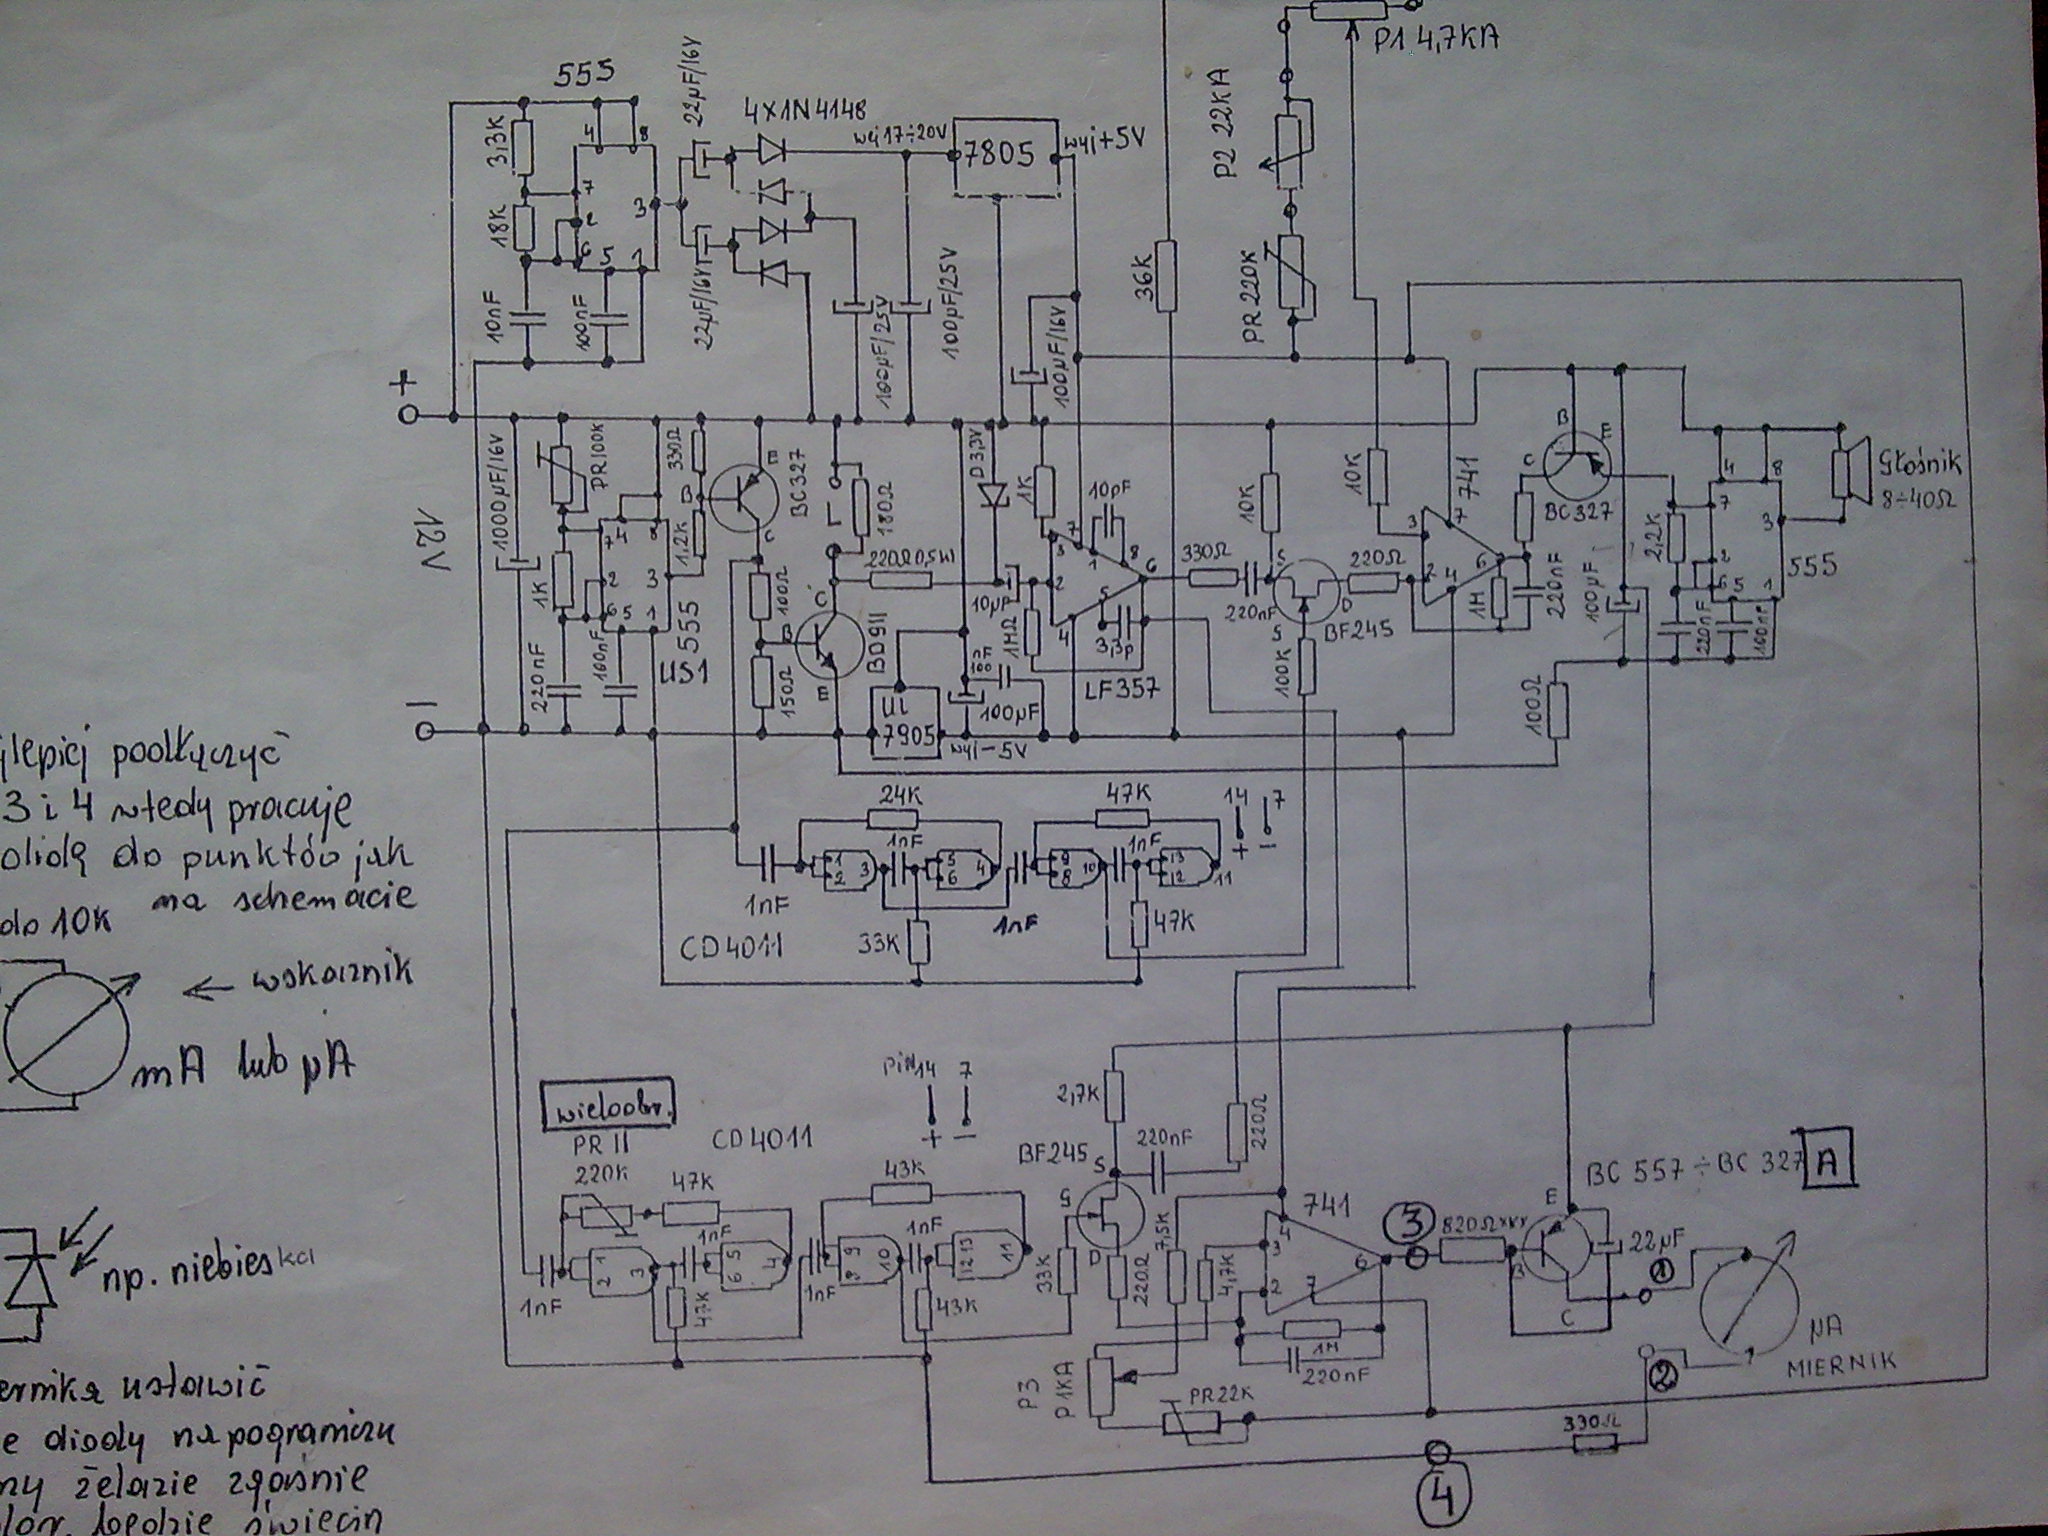 555
3,3K
18K
10nF
100nF
4
8
7
2
6
5
1
3
22µF/16V
22µF/16V
4x1N4148
wej 17÷20V
7805
wyj+5V
100µF/25V
100µF/25V
100µF/16V
36K
P1 4,7KA
P2 22KA
PR 220K
+
12V
−
1000µF/16V
PR100K
1K
220nF
100nF
7
4
8
2
6
5
1
3
555
US1
330Ω
1,2K
B
E
C
BC327
100Ω
150Ω
180Ω
220Ω 0,5W
B
C
E
BD911
D3,3V
1K
10µF
1MΩ
10pF
3
7
1
8
2
6
5
4
3,3p
LF357
U1
7905
wyj−5V
100µF
100
nF
330Ω
220nF
10K
10K
S
D
S
BF245
100K
220Ω
741
3
7
2
4
6
1M
220nF
B
C
E
BC327
100µF
100Ω
2,2K
220nF
100nF
7
4
8
2
6
5
1
3
555
Głośnik
8÷40Ω
24K
47K
14
7
+
−
1nF
1nF
1nF
1nF
1
2
3
5
6
4
9
8
10
13
12
11
33K
47K
CD4011
jlepiej podłączyć
3 i 4 wtedy pracuje
diodę do punktów jak
na schemacie
do 10K
← wskaźnik
mA lub µA
np. niebieska
ernika ustawić
e diody na pograniczu
ny żelazie zgaśnie
lor. będzie świecin
wieloobr.
PR11
220K
CD4011
pin 14
7
+
−
47K
43K
1nF
1nF
1nF
1nF
1
2
3
5
6
4
9
8
10
12
13
11
47K
43K
33K
2,7K
BF245
S
G
D
220nF
220Ω
220Ω
7,5K
4,7K
741
3
2
4
7
6
1M
220nF
P3
P1KA
PR22K
3
820Ωxxx
BC 557÷BC 327
A
E
B
C
22µF
1
2
µA
MIERNIK
330Ω
4